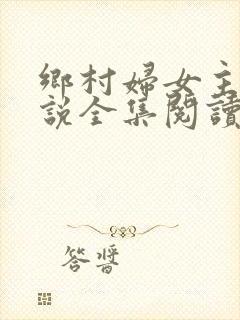 鄉村婦女主
說全集閱讀
答晉